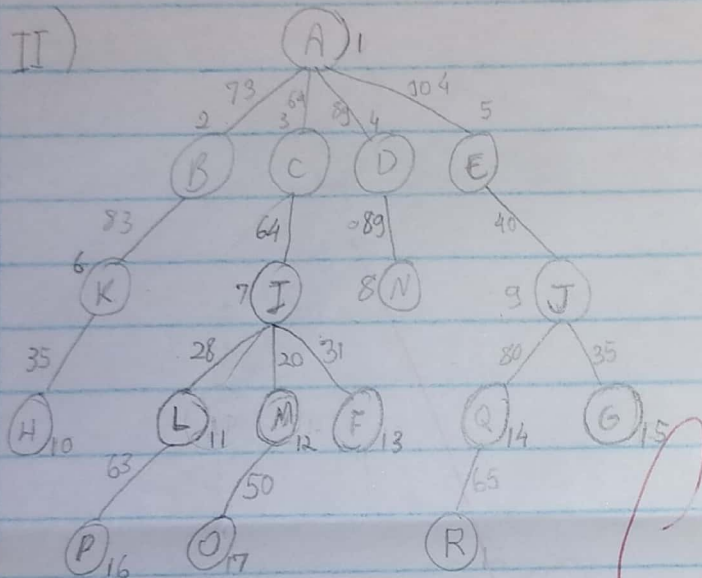 II)
A 1
73 64 89 104
2 3 4 5
B C D E
83 64 89 40
6 K 7 I 8 N 9 J
35 28 20 31 80 35
H 10 L 11 M 12 F 13 Q 14 G 15
63 50 65
P 16 O 17 R 1